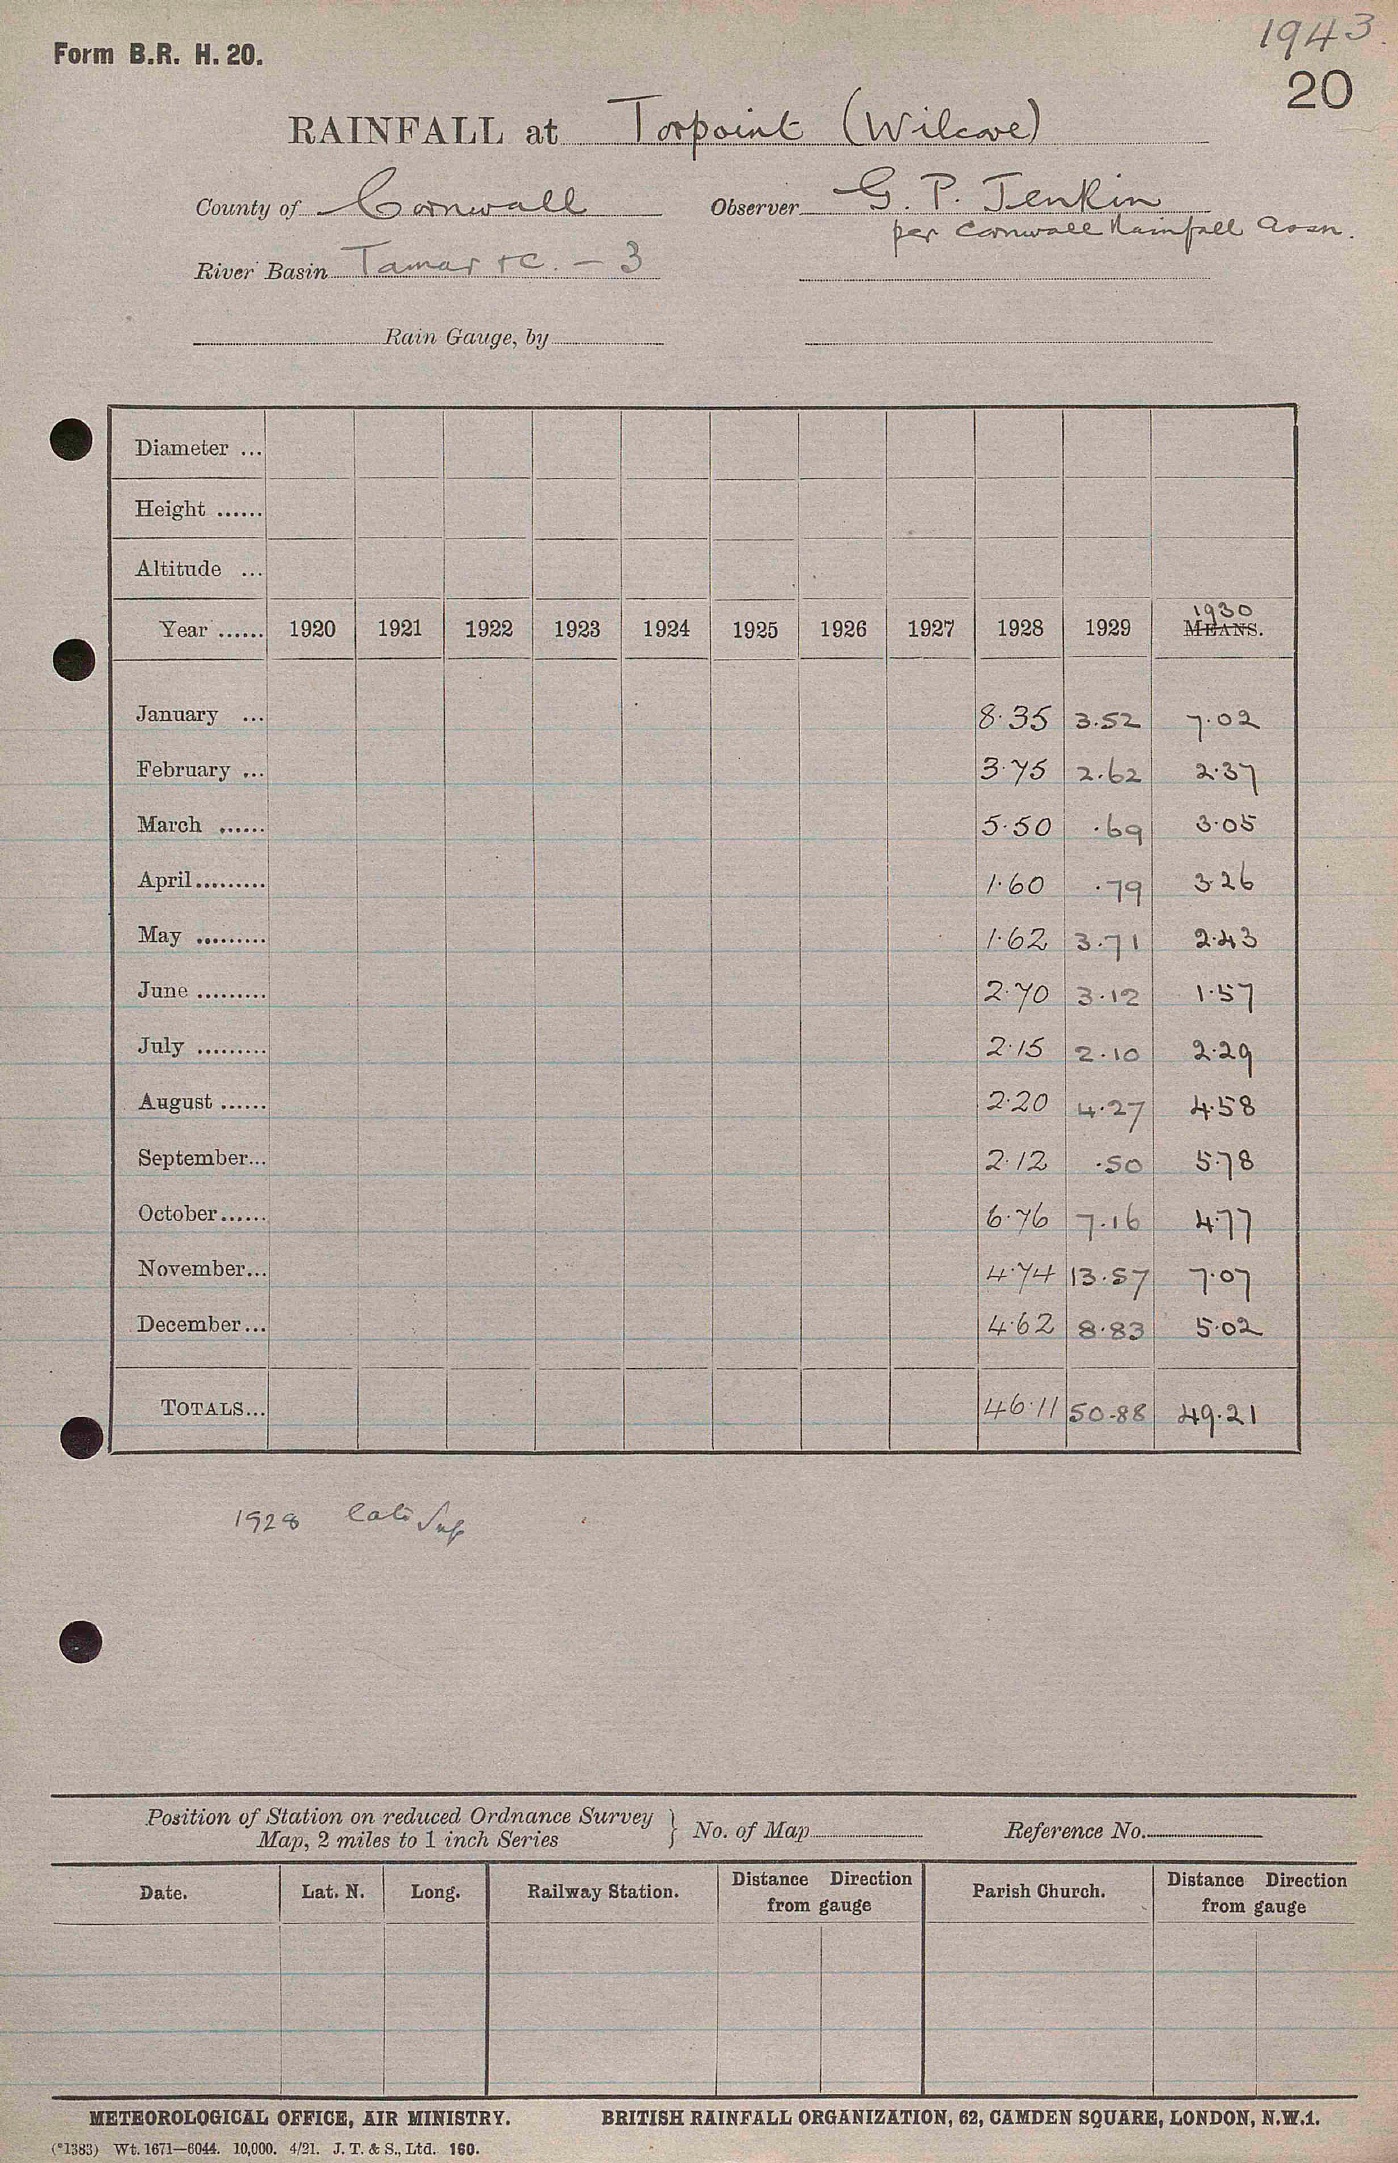 1943
Form B.R. H. 20.
20
RAINFALL at Torpoint (Wilcove)
County of Cornwall Observer G. P. Jenkin
per Cornwall Rainfall Assn.
River Basin Tamar &c. - 3
Rain Gauge, by
Diameter ...
Height ......
Altitude ...
1930
Year ...... 1920 1921 1922 1923 1924 1925 1926 1927 1928 1929 MEANS.
January ... 8.35 3.52 7.02
February ... 3.75 2.62 2.37
March ...... 5.50 .69 3.05
April......... 1.60 .79 3.26
May ......... 1.62 3.71 2.43
June ......... 2.70 3.12 1.57
July ......... 2.15 2.10 2.29
August ...... 2.20 4.27 4.58
September... 2.12 .50 5.78
October...... 6.76 7.16 4.77
November... 4.74 13.57 7.07
December... 4.62 8.83 5.02
TOTALS... 46.11 50.88 49.21
1928
Position of Station on reduced Ordnance Survey
Map, 2 miles to 1 inch Series } No. of Map Reference No.
Date. Lat. N. Long. Railway Station. Distance Direction from gauge Parish Church. Distance Direction from gauge
METEOROLOGICAL OFFICE, AIR MINISTRY. BRITISH RAINFALL ORGANIZATION, 62, CAMDEN SQUARE, LONDON, N.W.1.
(*1383) Wt. 1671—6044. 10,000. 4/21. J. T. & S., Ltd. 160.